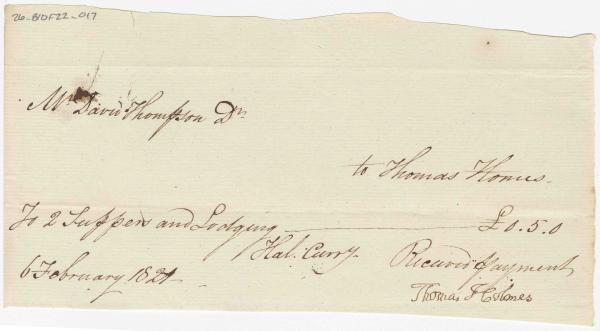 26-BIDF22-017
Mr. David Thompson Dr.
to Thomas Homes.
To 2 Suppers and Lodging £0.5.0
Hal. Curry.
6 February 1821
Received payment
Thomas Holmes